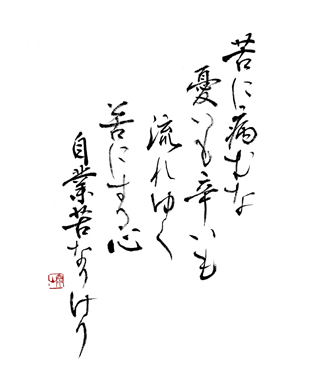 苦に病むな
憂いも辛いも
流れゆく
苦にする心
自業苦なりけり